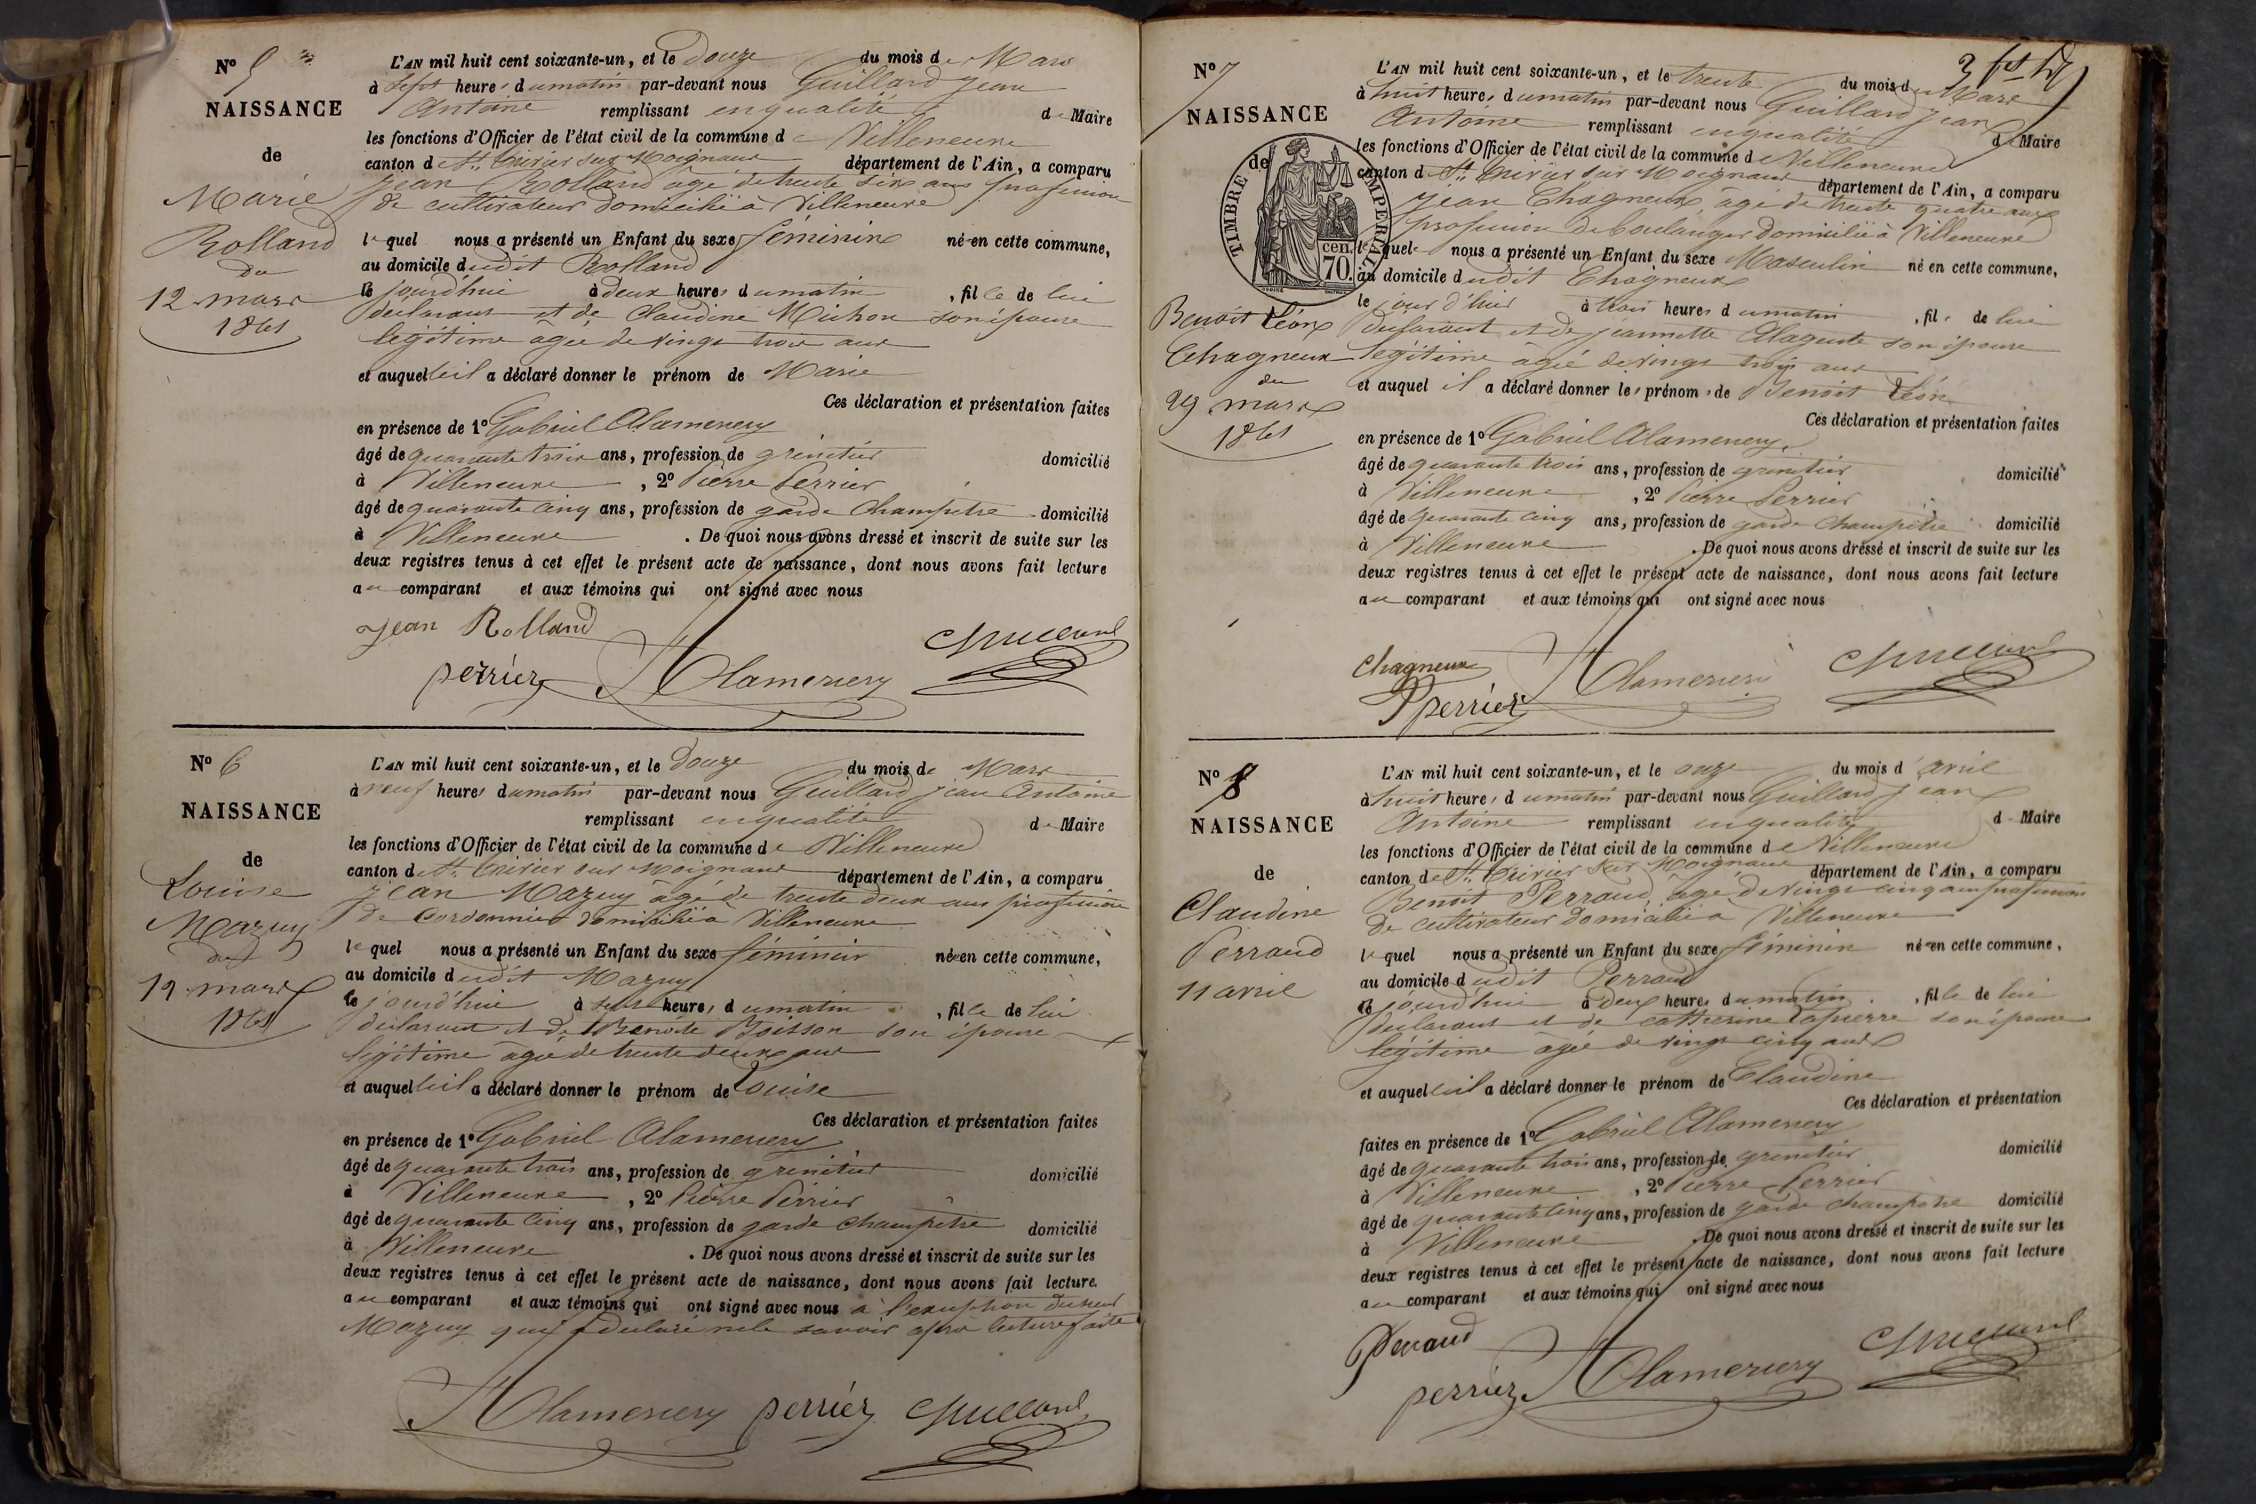 N° 5
NAISSANCE
de
Marie
Rolland
du
12 mars
1861
L'AN mil huit cent soixante-un, et le douze du mois de Mars
à Sept heures du matin par-devant nous Guillard Jean
Antoine remplissant en qualité de Maire
les fonctions d'Officier de l'état civil de la commune de Villeneuve
canton de St. Trivier sur Moignans département de l'Ain, a comparu
Jean Rolland âgé de trente six ans profession
de cultivateur domicilié à Villeneuve
lequel nous a présenté un Enfant du sexe féminin né en cette commune,
au domicile dudit Rolland
le jourd'hui à deux heures du matin, fille de lui
déclarant et de Claudine Michon son épouse
légitime agée de vingt trois ans
et auquel il a déclaré donner le prénom de Marie
Ces déclaration et présentation faites
en présence de 1° Gabriel Alamercery
âgé de quarante trois ans, profession de grenetier domicilié
à Villeneuve, 2° Pierre Perrier
âgé de quarante cinq ans, profession de garde champêtre domicilié
à Villeneuve. De quoi nous avons dressé et inscrit de suite sur les
deux registres tenus à cet effet le présent acte de naissance, dont nous avons fait lecture
au comparant et aux témoins qui ont signé avec nous
Jean Rolland
perrier Alamercery Guillard
N° 6
NAISSANCE
de
Louise
Mazuy
du
12 mars
1861
L'AN mil huit cent soixante-un, et le douze du mois de Mars
à neuf heures du matin par-devant nous Guillard Jean Antoine
remplissant en qualité de Maire
les fonctions d'Officier de l'état civil de la commune de Villeneuve
canton de St. Trivier sur Moignans département de l'Ain, a comparu
Jean Mazuy âgé de trente deux ans profession
de cordonnier domicilié à Villeneuve
lequel nous a présenté un Enfant du sexe féminin né en cette commune,
au domicile dudit Mazuy
le jourd'hui à heures du matin, fille de lui
déclarant et de Benoîte Boisson son épouse
légitime âgée de trente deux ans
et auquel il a déclaré donner le prénom de Louise
Ces déclaration et présentation faites
en présence de 1° Gabriel Alamercery
âgé de quarante trois ans, profession de grenetier domicilié
à Villeneuve, 2° Pierre Perrier
âgé de quarante cinq ans, profession de garde champêtre domicilié
à Villeneuve. De quoi nous avons dressé et inscrit de suite sur les
deux registres tenus à cet effet le présent acte de naissance, dont nous avons fait lecture.
au comparant et aux témoins qui ont signé avec nous à l'exception du sieur
Mazuy qui a déclaré ne le savoir après lecture faite
Alamercery perrier Guillard
3
N° 7
NAISSANCE
de
TIMBRE IMPERIAL
cen.
70.
Benoît Léon
Chagneux
du
29 mars
1861
L'AN mil huit cent soixante-un, et le trente du mois de Mars
à huit heures du matin par-devant nous Guillard Jean
Antoine remplissant en qualité de Maire
les fonctions d'Officier de l'état civil de la commune de Villeneuve
canton de St. Trivier sur Moignans département de l'Ain, a comparu
Jean Chagneux âgé de trente quatre ans
profession de boulanger domicilié à Villeneuve
lequel nous a présenté un Enfant du sexe Masculin né en cette commune,
au domicile dudit Chagneux
le jour d'hier à trois heures du matin, fils de lui
déclarant et de Jeannette Alaguete son épouse
légitime âgée de vingt trois ans
et auquel il a déclaré donner les prénoms de Benoît Léon
Ces déclaration et présentation faites
en présence de 1° Gabriel Alamercery
âgé de quarante trois ans, profession de grenetier domicilié
à Villeneuve, 2° Pierre Perrier
âgé de quarante cinq ans, profession de garde champêtre domicilié
à Villeneuve. De quoi nous avons dressé et inscrit de suite sur les
deux registres tenus à cet effet le présent acte de naissance, dont nous avons fait lecture
au comparant et aux témoins qui ont signé avec nous
Chagneux Alamercery Guillard
perrier
N° 8
NAISSANCE
de
Claudine
Perraud
11 avril
L'AN mil huit cent soixante-un, et le onze du mois d'avril
à huit heures du matin par-devant nous Guillard Jean
Antoine remplissant en qualité de Maire
les fonctions d'Officier de l'état civil de la commune de Villeneuve
canton de St. Trivier sur Moignans département de l'Ain, a comparu
Benoît Perraud âgé de vingt cinq ans profession
de cultivateur domicilié à Villeneuve
lequel nous a présenté un Enfant du sexe féminin né en cette commune,
au domicile dudit Perraud
le jourd'hui à deux heures du matin, fille de lui
déclarant et de catherine Lapierre son épouse
légitime agée de vingt cinq ans
et auquel il a déclaré donner le prénom de Claudine
Ces déclaration et présentation
faites en présence de 1° Gabriel Alamercery
âgé de quarante trois ans, profession de grenetier domicilié
à Villeneuve, 2° Pierre Perrier
âgé de quarante cinq ans, profession de garde champêtre domicilié
à Villeneuve. De quoi nous avons dressé et inscrit de suite sur les
deux registres tenus à cet effet le présent acte de naissance, dont nous avons fait lecture
au comparant et aux témoins qui ont signé avec nous
Perraud
perrier Alamercery Guillard